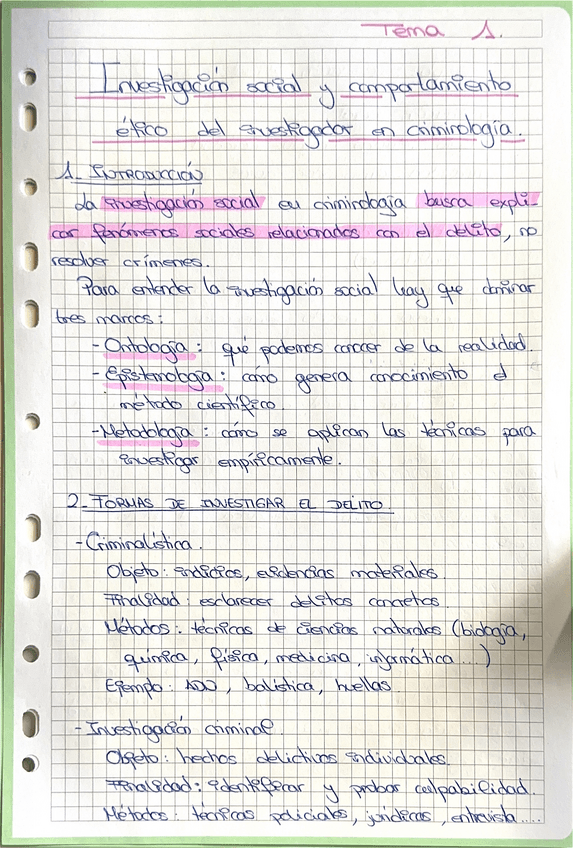 Tema 1.
Investigación social y comportamiento
ético del investigador en criminología.
1_ INTRODUCCIÓN
La investigación social en criminología busca expli-
car fenómenos sociales relacionados con el delito, no
resolver crímenes.
Para entender la investigación social hay que dominar
tres marcos:
- Ontología: qué podemos conocer de la realidad.
- Epistemología: cómo genera conocimiento el
método científico.
- Metodología: cómo se aplican las técnicas para
investigar empíricamente.
2_ FORMAS DE INVESTIGAR EL DELITO.
- Criminalística.
Objeto: indicios, evidencias materiales.
Finalidad: esclarecer delitos concretos.
Métodos: técnicas de ciencias naturales (biología,
química, física, medicina, informática...)
Ejemplo: ADN, balística, huellas.
- Investigación criminal.
Objeto: hechos delictivos individuales.
Finalidad: identificar y probar culpabilidad.
Métodos: técnicas policiales, jurídicas, entrevista....